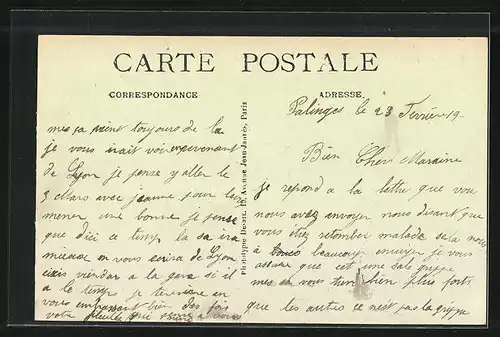 CARTE POSTALE
CORRESPONDANCE
ADRESSE
Palinges le 23 Fevrier 19
Bien Cher Maraine
je repond a la lettre que vou
nous avez envoyer nous disant que
vous etiez retomber malade sela nous
a beaucoup ennuyer je vous
assure que est une sale grippe
mes vous bien plus forts
que les autres ce nest pas la grippe
mes sa vient toujours de la
je vous irait voi en revenent
de Lyon je pense y aller le
3 Mars avec jeanne pour leur
mener une bonne je pense
que dici ce temp la sa ira
mieux on vous ecrira de Lyon
viendar a la gare si il
a le temp je termine en
vous embrassant bien des fois
votre qui pense a vous
Phototypie Desaix, Avenue Jean-Jaurès, Paris